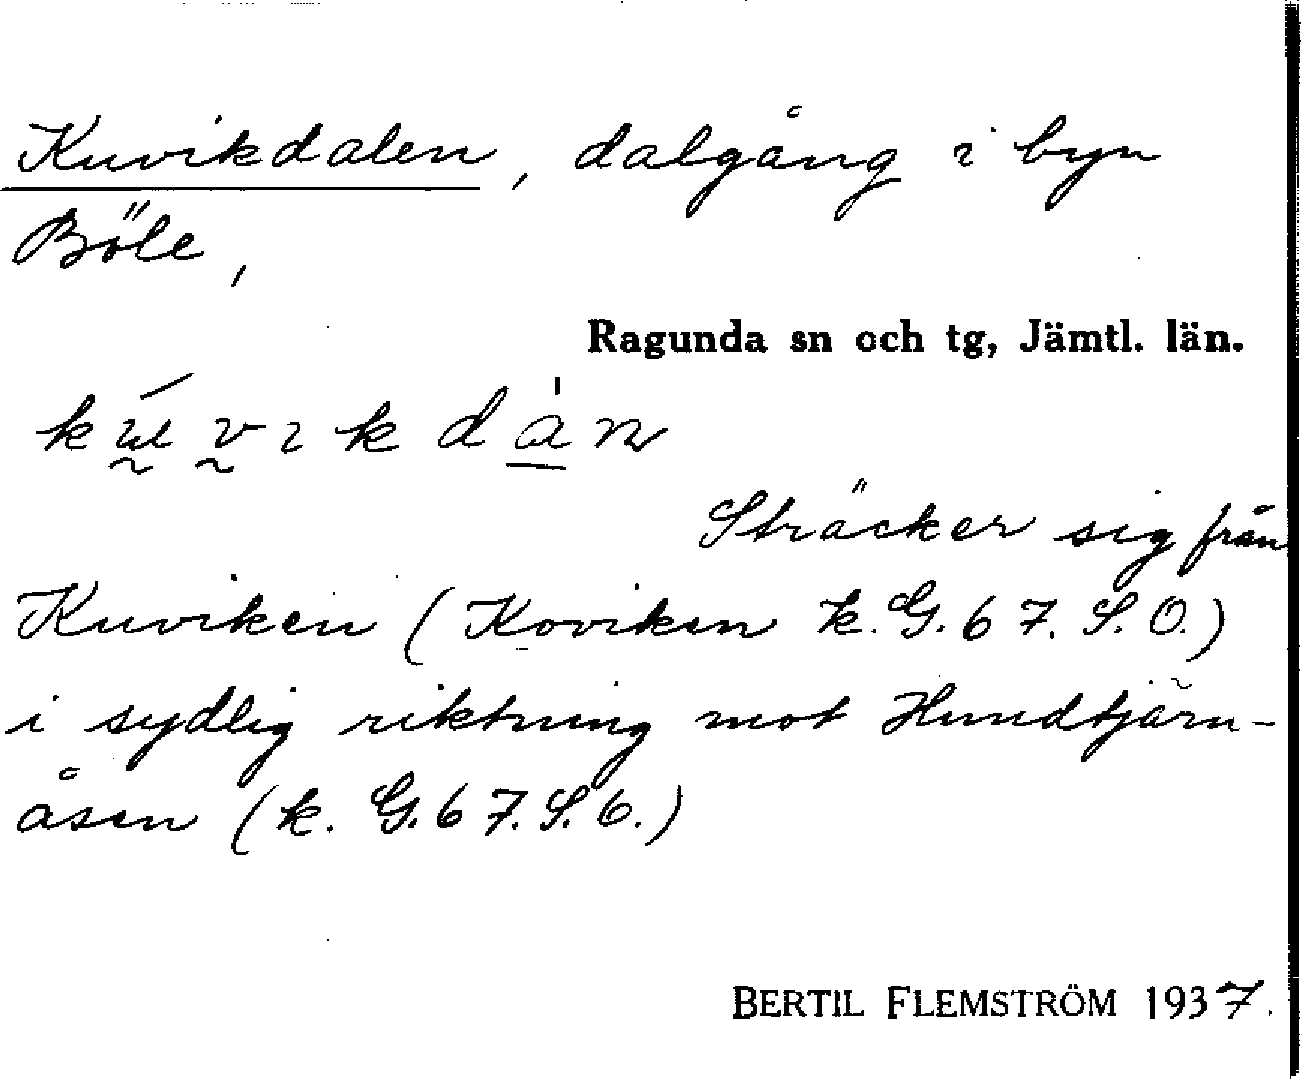 Kuvikdalen, dalgång i byn
Böle,
Ragunda sn och tg, Jämtl. län.
Sträcker sig från
Kuviken (Koviken k. G. 67. S. O.)
i sydlig riktning mot Hundtjärn-
åsen (k. G. 67. S. O.)
BERTIL FLEMSTRÖM 1937.